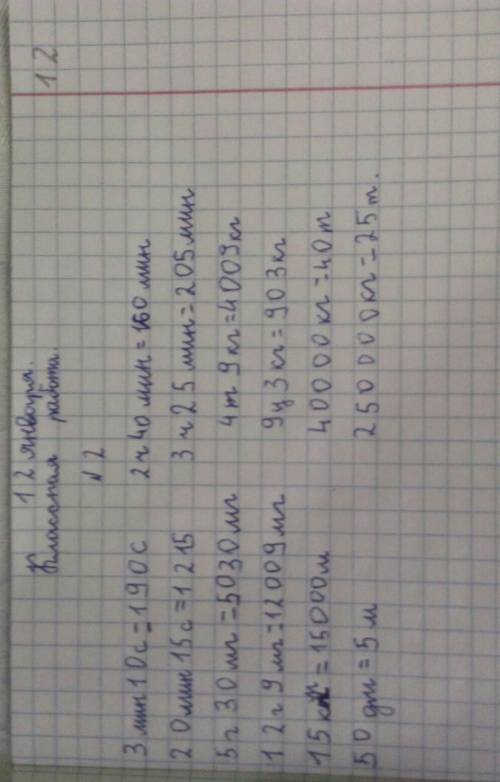 12
12 января.
Классная работа.
№2
3 мин 10 с = 190 с 2 ч 40 мин = 160 мин
20 мин 15 с = 1215 3 ч 25 мин = 205 мин
5 г 30 мг = 5030 мг 4 т 9 кг = 4009 кг
12 г 9 мг = 12009 мг 9 ц 3 кг = 903 кг
15 км = 15000 м 40000 кг = 40 т
50 дм = 5 м 250000 кг = 25 т.